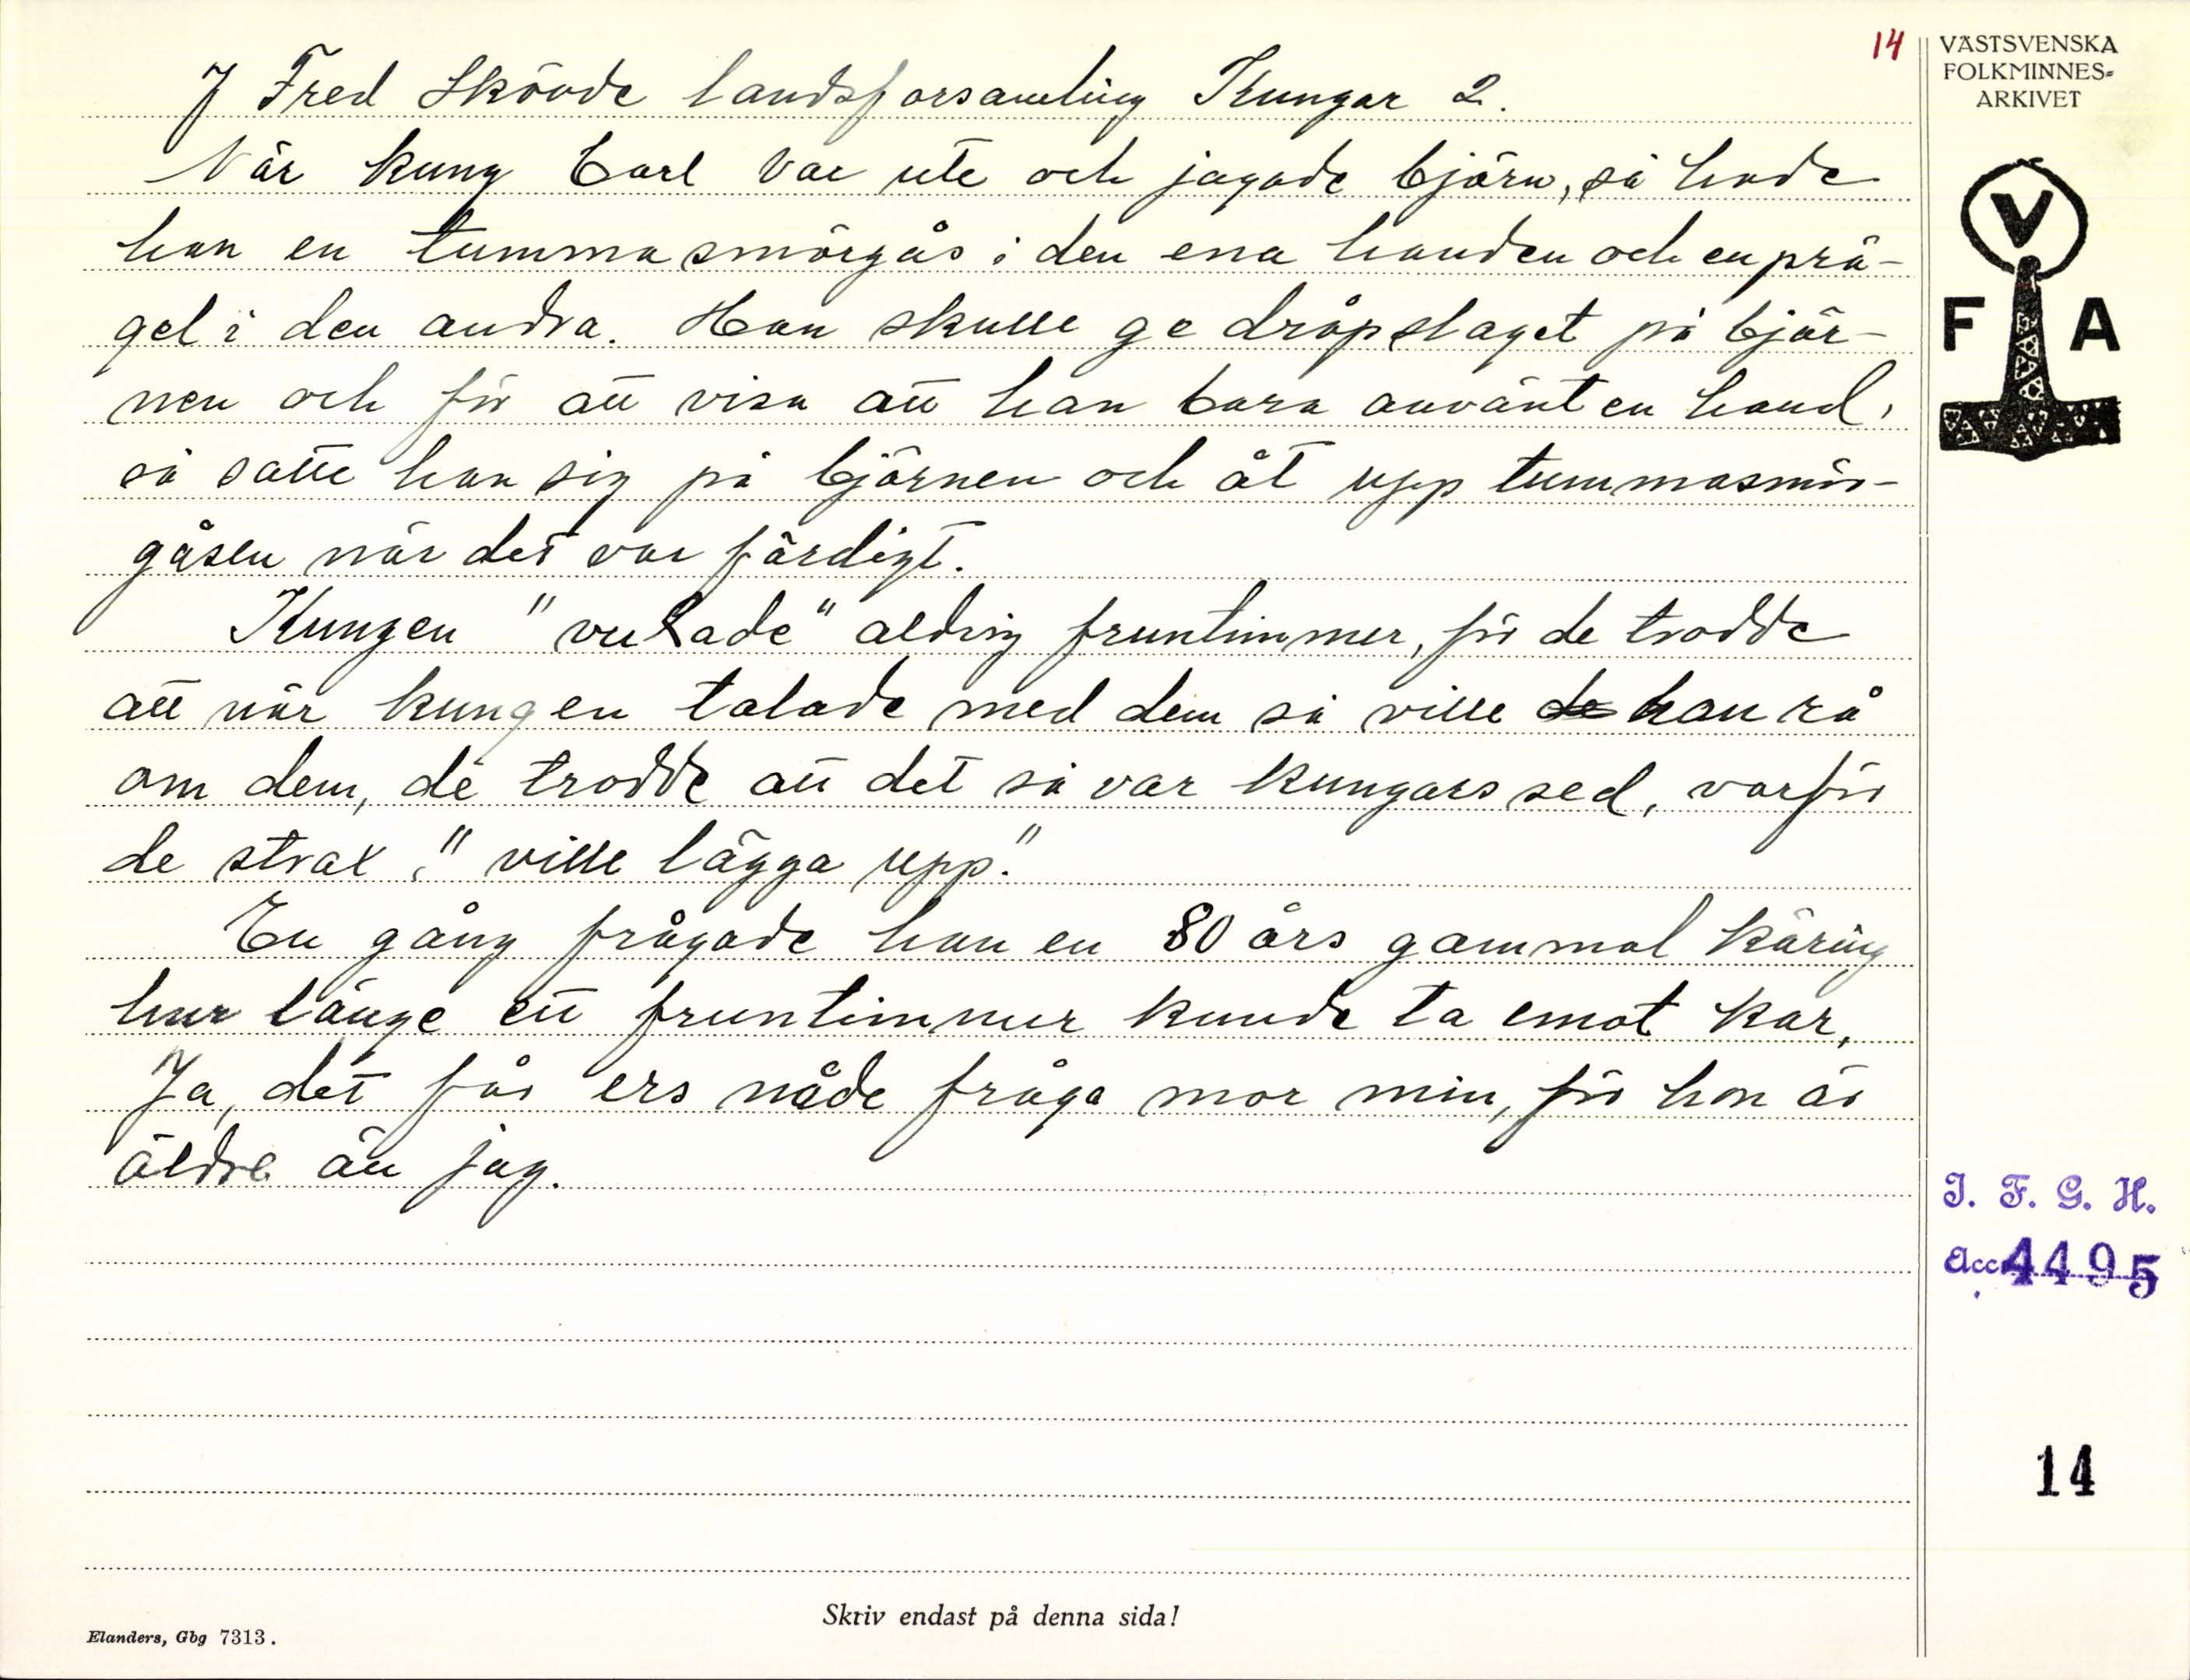 14
VÄSTSVENSKA
FOLKMINNES=
ARKIVET
J Fred Skövde landsforsamling Kungar 2.
När kung Carl var ute och jagade björn, så hade
han en tumma smörgås i den ena handen och en prä-
gel i den andra. Han skulle ge dråpslaget på björ-
nen och för att visa att han bara använt en hand,
så satte han sig på björnen och åt upp tummasmör-
gåsen när det var färdigt.
Kungen " " aldrig fruntimmer, för de trodde
att när kungen talade med dem så ville de han rå
om dem, de trodde att det så var kungars sed, varför
de strax " ville lägga upp."
En gång frågade han en 80 års gammal käring
hur länge ett fruntimmer kunde ta emot kar,
Ja, det får ers nåde fråga mor min, för hon är
äldre än jag.
V
F A
I. F. G. H.
Acc. 4495
14
Skriv endast på denna sida!
Elanders, Gbg 7313.